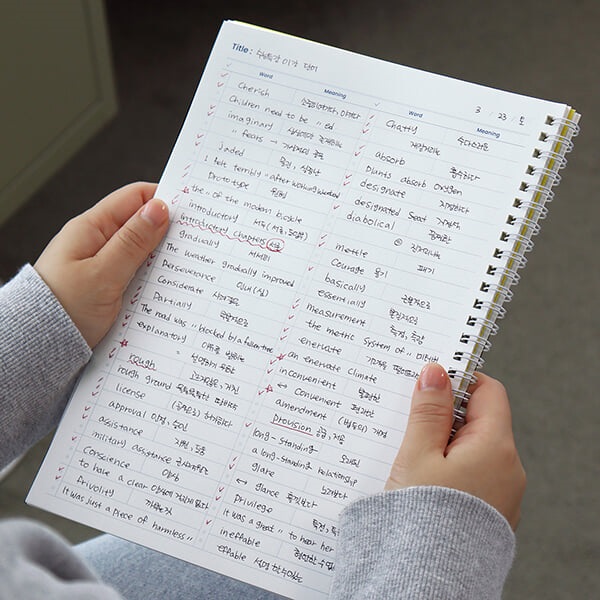 Title : 수능특강 이강 단어
3 / 23 / 토
Word Meaning
Cherish 소중히하다, 아끼다
Children need to be " ed
imaginary 상상의
" fears → 가상의 공포
jaded 물린, 싫증난
I felt terribly " after working weekend
Prototype 원형
the " of the modern bicycle
introductory
introductory chapters 서론
gradually 서서히
The weather gradually improved
Perseverance 인내 (심)
Considerate 사려깊은
Partially 부분적으로
The road was " blocked by a fallen tree
explanatory 이유를 밝히는
rough 고르지않은, 거친
rough ground
license
approval 인정, 승인
assistance 지원, 도움
military assistance 군사지원
Conscience 양심
to have a clear 양심에 거리낌 없다
Frivolity
It was just a piece of harmless "
Word Meaning
Chatty 수다스러운
absorb 흡수하다
plants absorb oxygen
designate 지정하다
designated seat 지정석
diabolical
mettle 패기
Courage 용기
basically 근본적으로
essentially 본질적으로
measurement 측정, 측량
the metric System of "
enervate
an enervate climate
inconvenient 불편한
↔ Convenient 편리한
amendment (법등의) 개정
Provision 공급, 제공
long-standing 오래된
a long-standing relationship
glare
↔ glance 흘긋보다
Privilege 특권
It was a great " to hear her
ineffable
effable 설명 할 수 있는